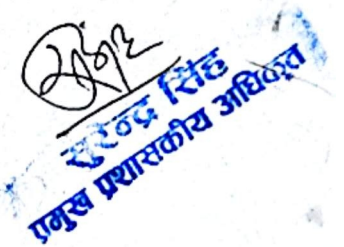 सुरेन्द्र सिंह
प्रमुख प्रशासकीय अधिकृत